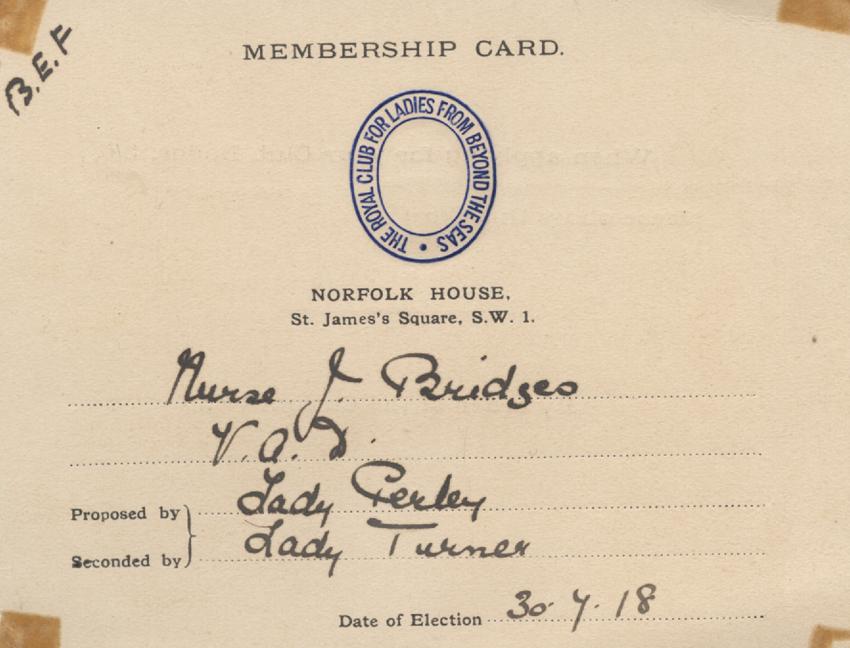 B.E.F
MEMBERSHIP CARD.
THE ROYAL CLUB FOR LADIES FROM BEYOND THE SEAS •
NORFOLK HOUSE,
St. James's Square, S.W. 1.
Nurse J. Bridges
V.A.D.
Proposed by Lady Perley
Seconded by Lady Turner
Date of Election 30.7.18